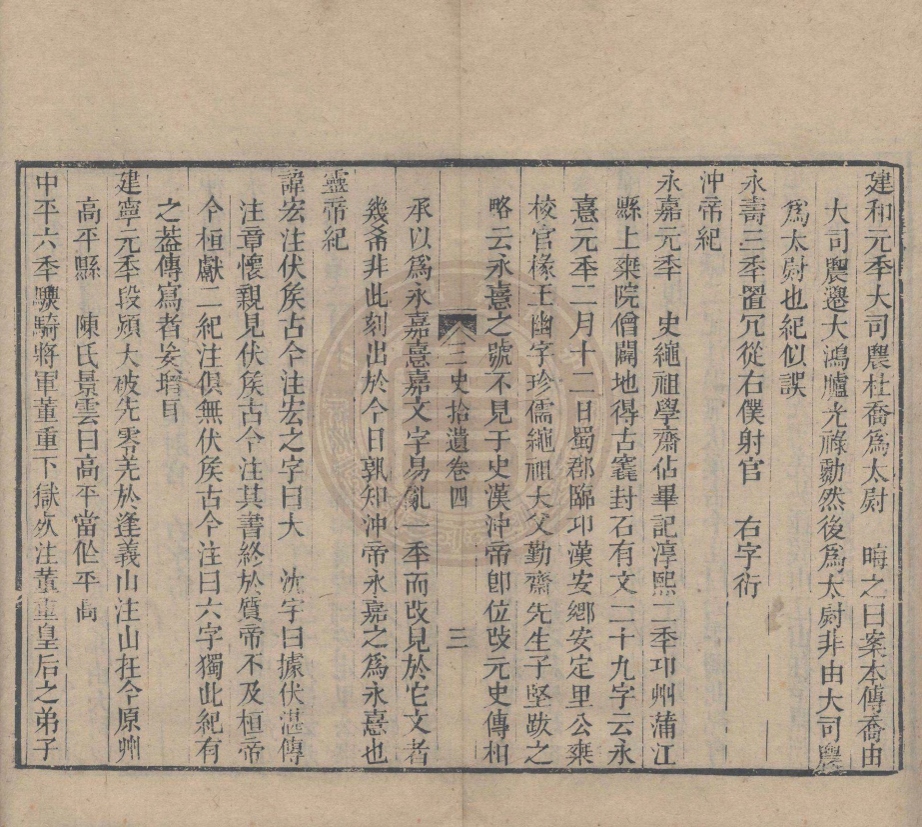 建和元秊大司農杜喬爲太尉　晦之曰案本傳喬由
大司農遷大鴻臚光祿勳然後爲太尉非由大司農
爲太尉也紀似誤
永壽三秊置冗從右僕射官　右字衍
沖帝紀
永嘉元秊　史繩祖學齋佔畢記淳熙二秊邛州蒲江
縣上乘院僧闢地得古窆封石有文二十九字云永
憙元秊二月十二日蜀郡臨邛漢安鄉安定里公乘
校官椽王幽字珍儒繩祖大父勤齋先生子堅跋之
略云永憙之號不見于史漢沖帝卽位改元史傳相
三史拾遺卷四　三
承以爲永嘉憙嘉文字易亂一秊而改見於它文者
幾希非此刻出於今日孰知沖帝永嘉之爲永憙也
靈帝紀
諱宏注伏矦古今注宏之字曰大　沈宇曰據伏湛傳
注章懷親見伏矦古今注其書終於質帝不及桓帝
今桓獻二紀注俱無伏矦古今注曰六字獨此紀有
之葢傳寫者妄增耳
建寧元秊段熲大破先零羌於逢義山注山在今原州
高平縣　陳氏景雲曰高平當作平高
中平六秊驃騎將軍董重下獄死注董重皇后之弟子